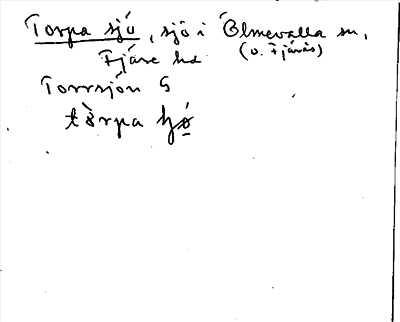 Torpa sjö, sjö i Ölmevalla sn,
(o. Fjärås)
Fjäre hd
Torrsjön S
tòrpa